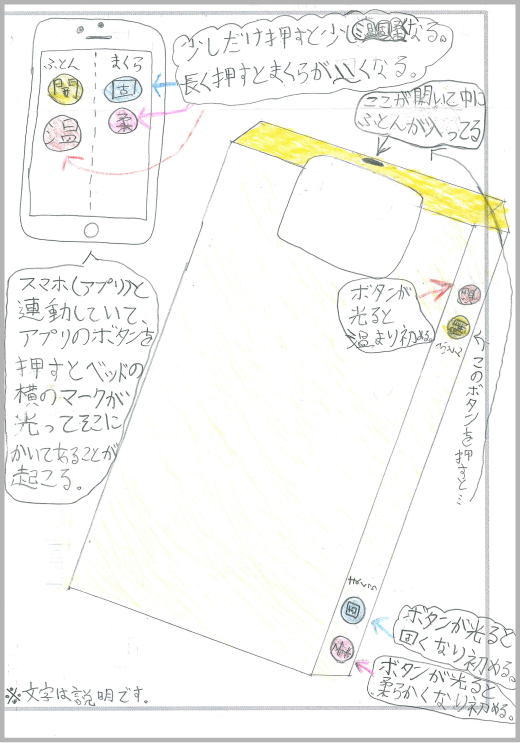 ふとん
まくら
開
固
温
柔
少しだけ押すと少し温固柔なる。
長く押すとまくらが〃くなる。
ここが開いて中に
ふとんが入ってる
ボタンが
光ると
温まり初める。
スマホ(アプリ)と
連動していて、
アプリのボタンを
押すとベッドの
横のマークが
光ってそこに
かいてあることが
起こる。
このボタンを押すと…
まくら
固
ボタンが光ると
固くなり初める。
ボタンが光ると
柔らかくなり初める。
※文字は説明です。